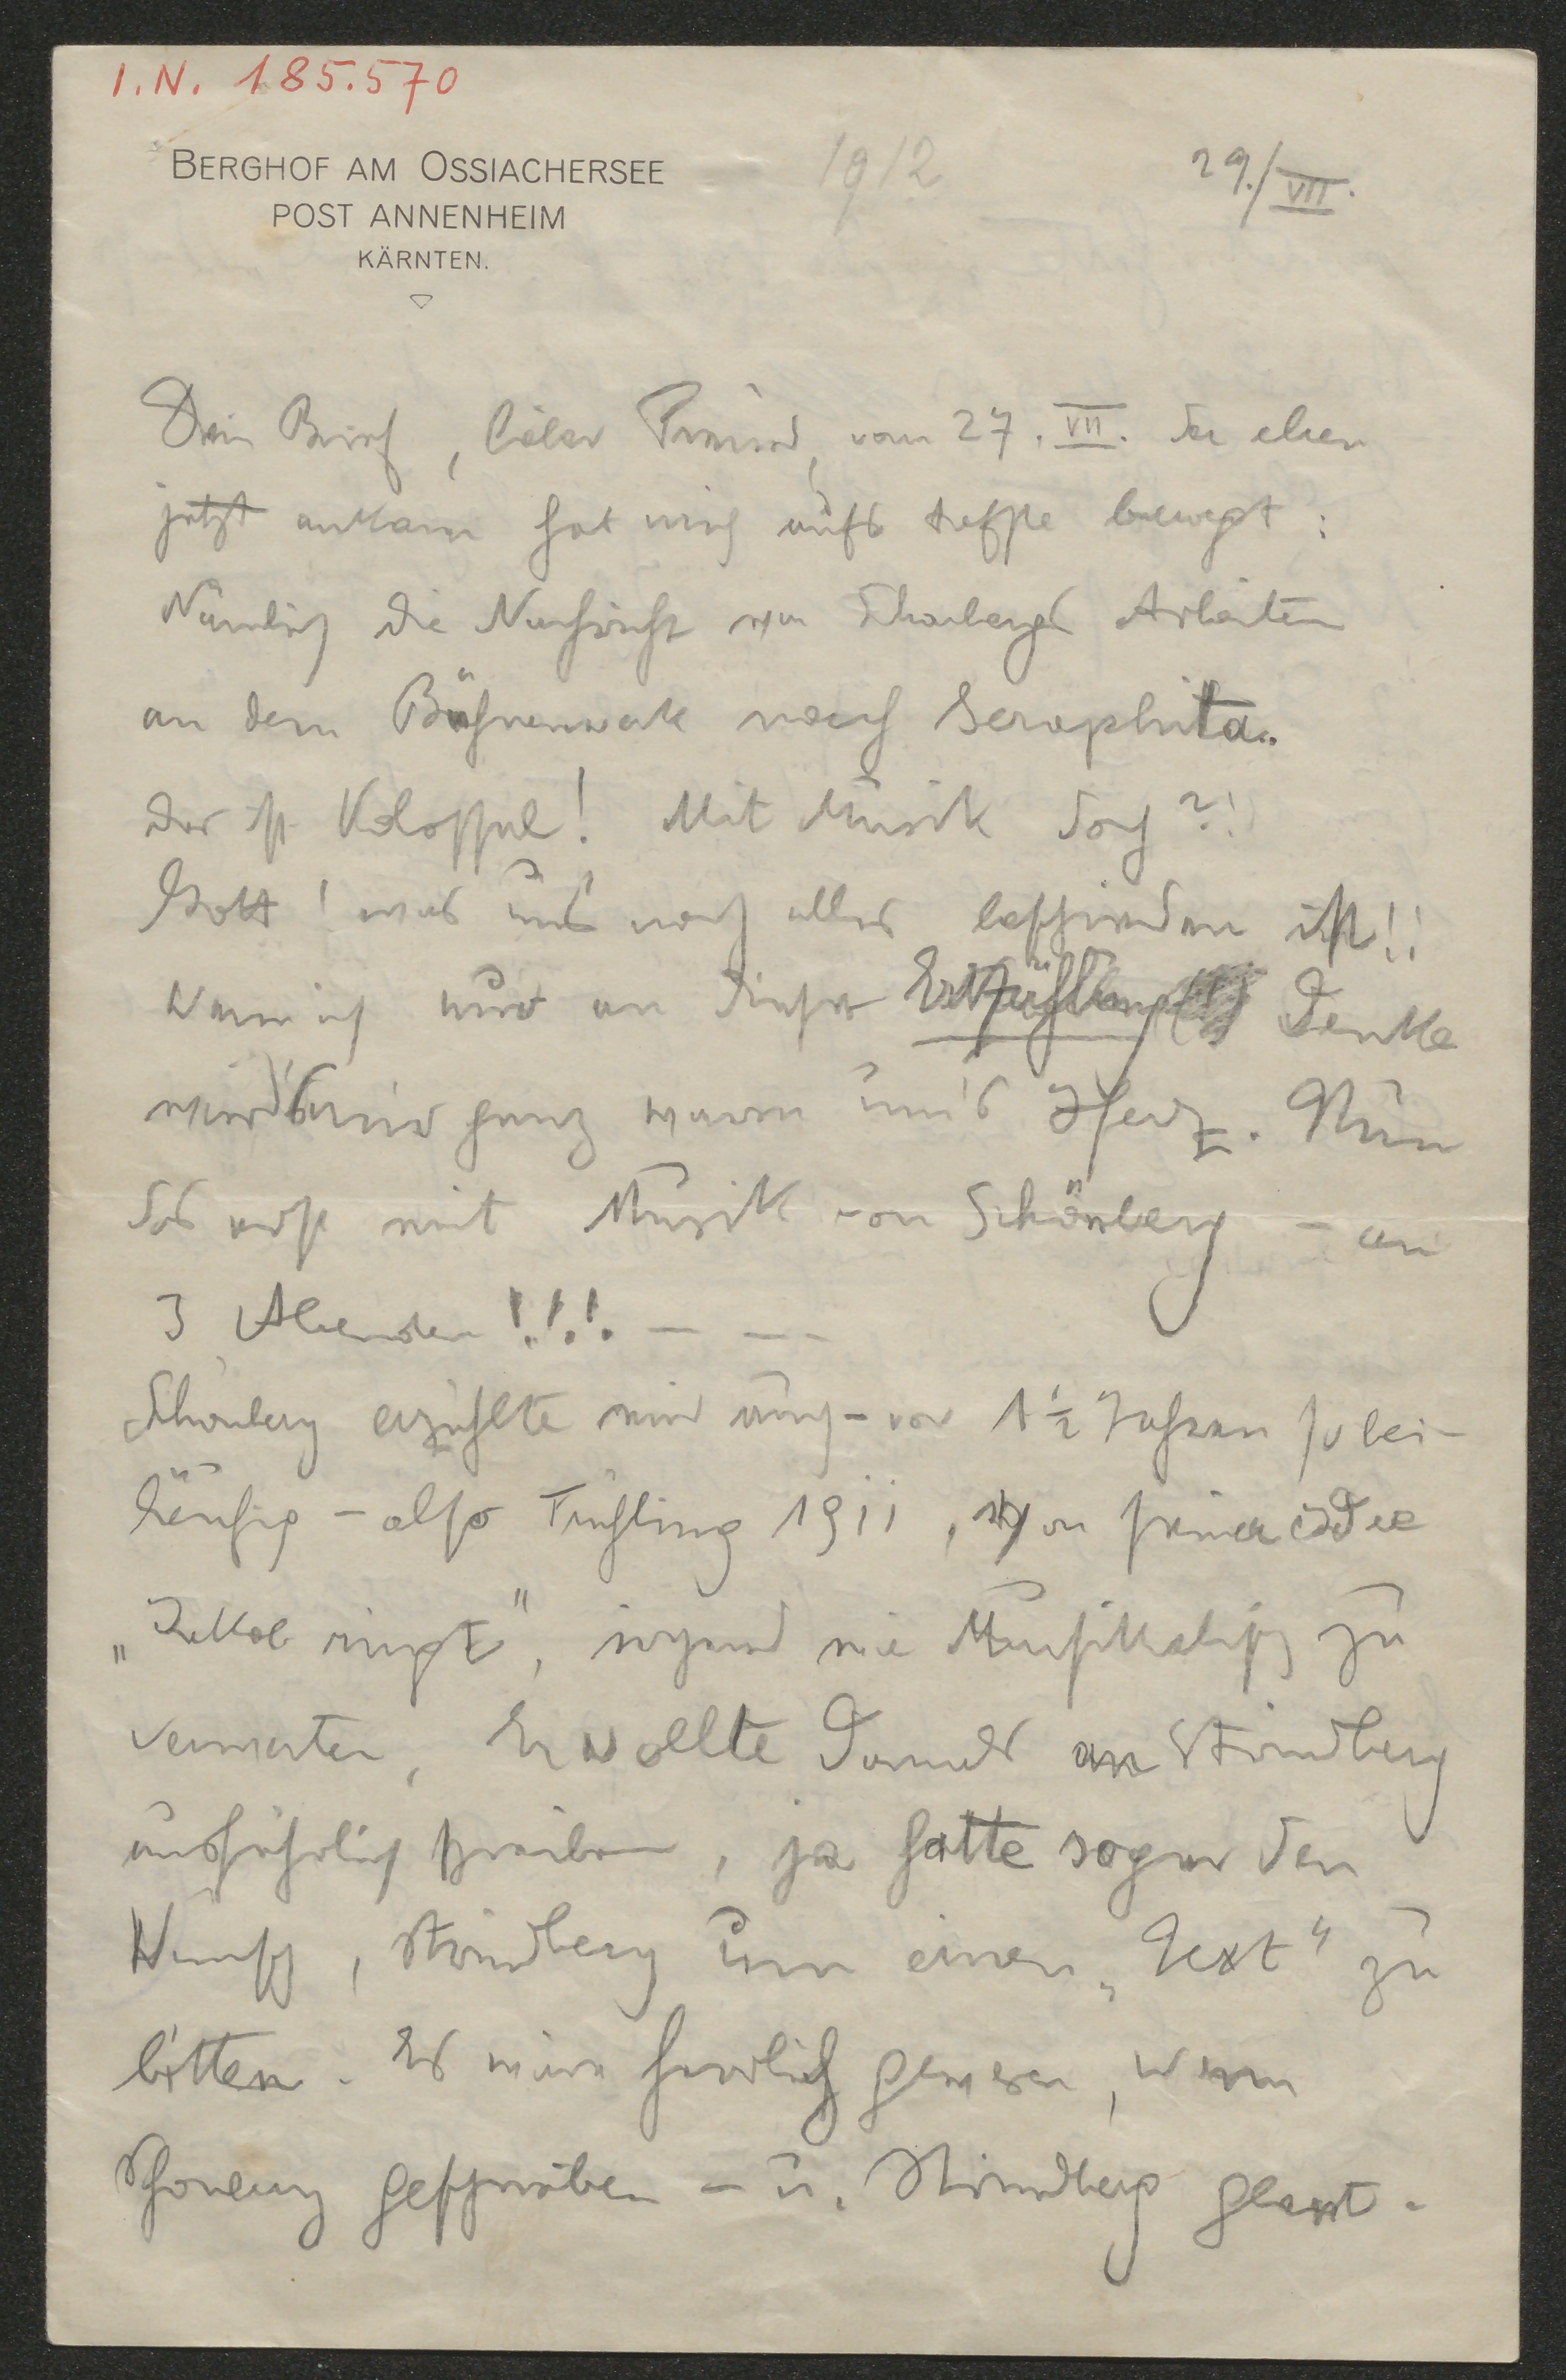 I.N. 185.570
BERGHOF AM OSSIACHERSEE
POST ANNENHEIM
KÄRNTEN.
1912
29./VII.
Dein Brief, lieber Freund, vom 27. VII. der eben
jetzt ankam hat mich aufs tiefste bewegt:
Nämlich die Nachricht von Schönbergs Arbeiten
an dem Bühnenwerk nach Seraphita.
Das ist Kolossal! Mit Musik doch?!
Gott! was uns noch alles beschieden ist!!
Wenn ich nur an diese Erzählung denke
wird's mir ganz warm um's Herz. Nun
das erst mit Musik von Schönberg – an
3 Abenden!!!! – – –
Schönberg erzählte mir auch – vor 1½ Jahren so bei-
läufig – also Frühling 1911, von seiner Idee
„Jakob ringt", irgend wie Musikalisch zu
verwerten, Er wollte damals an Strindberg
ausführlich schreiben, ja hatte sogar den
Wunsch, Strindberg um einen „Text" zu
bitten. Es wäre herrlich gewesen, wenn
Schönberg geschrieben – u. Strindberg